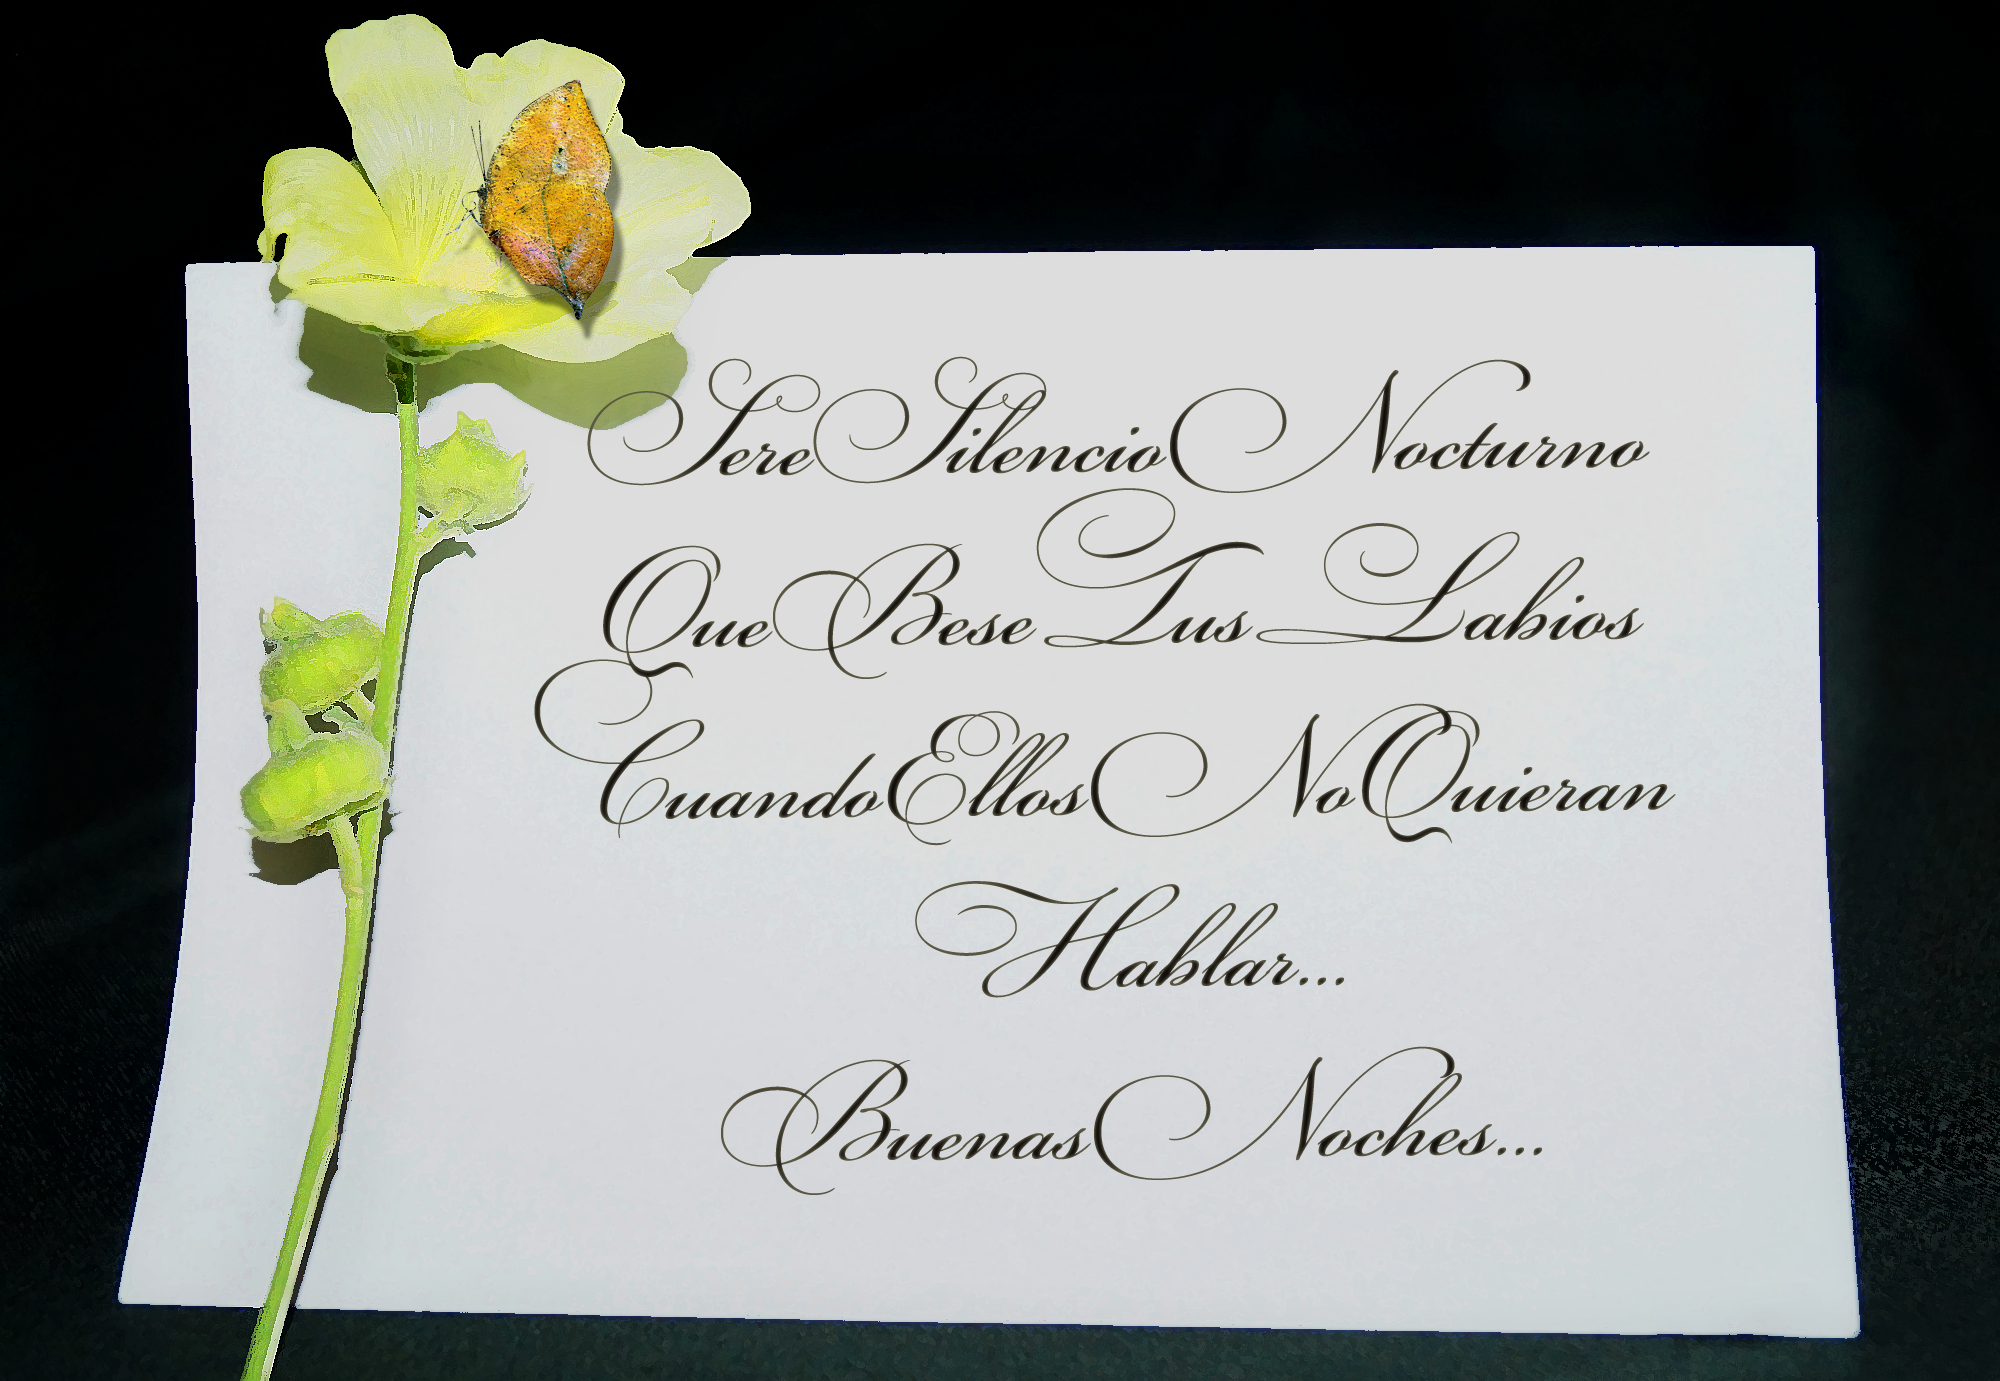 Sere Silencio Nocturno
Que Bese Tus Labios
Cuando Ellos No Quieran
Hablar...
Buenas Noches...